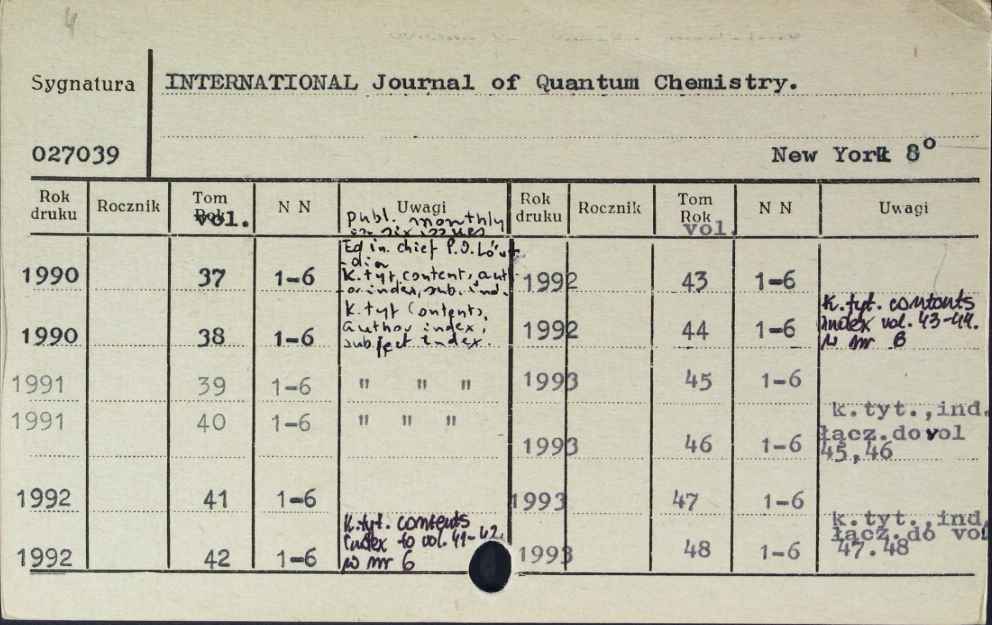 4
Sygnatura INTERNATIONAL Journal of Quantum Chemistry.
027039 New York 8°
Rok druku Rocznik Tom Rok vol. N N Uwagi Rok druku Rocznik Tom Rok vol. N N Uwagi
publ. monthly
six issues
Ed in. chief P.O. Löw-
din
1990 37 1-6 K. tyt, content, auth-
or index, sub. ind.
1990 38 1-6 K. tyt Contents,
author index,
subject index.
1991 39 1-6 " " "
1991 40 1-6 " " "
1992 41 1-6
1992 42 1-6 K. tyt. contents
index to vol. 41-42
w nr 6
1992 43 1-6
1992 44 1-6 K. tyt. contents
index vol. 43-44.
w nr 6
1993 45 1-6
1993 46 1-6 k.tyt.,ind.
łącz.do vol
45,46
1993 47 1-6
1993 48 1-6 k.tyt.,ind.
łącz.do vol
47.48